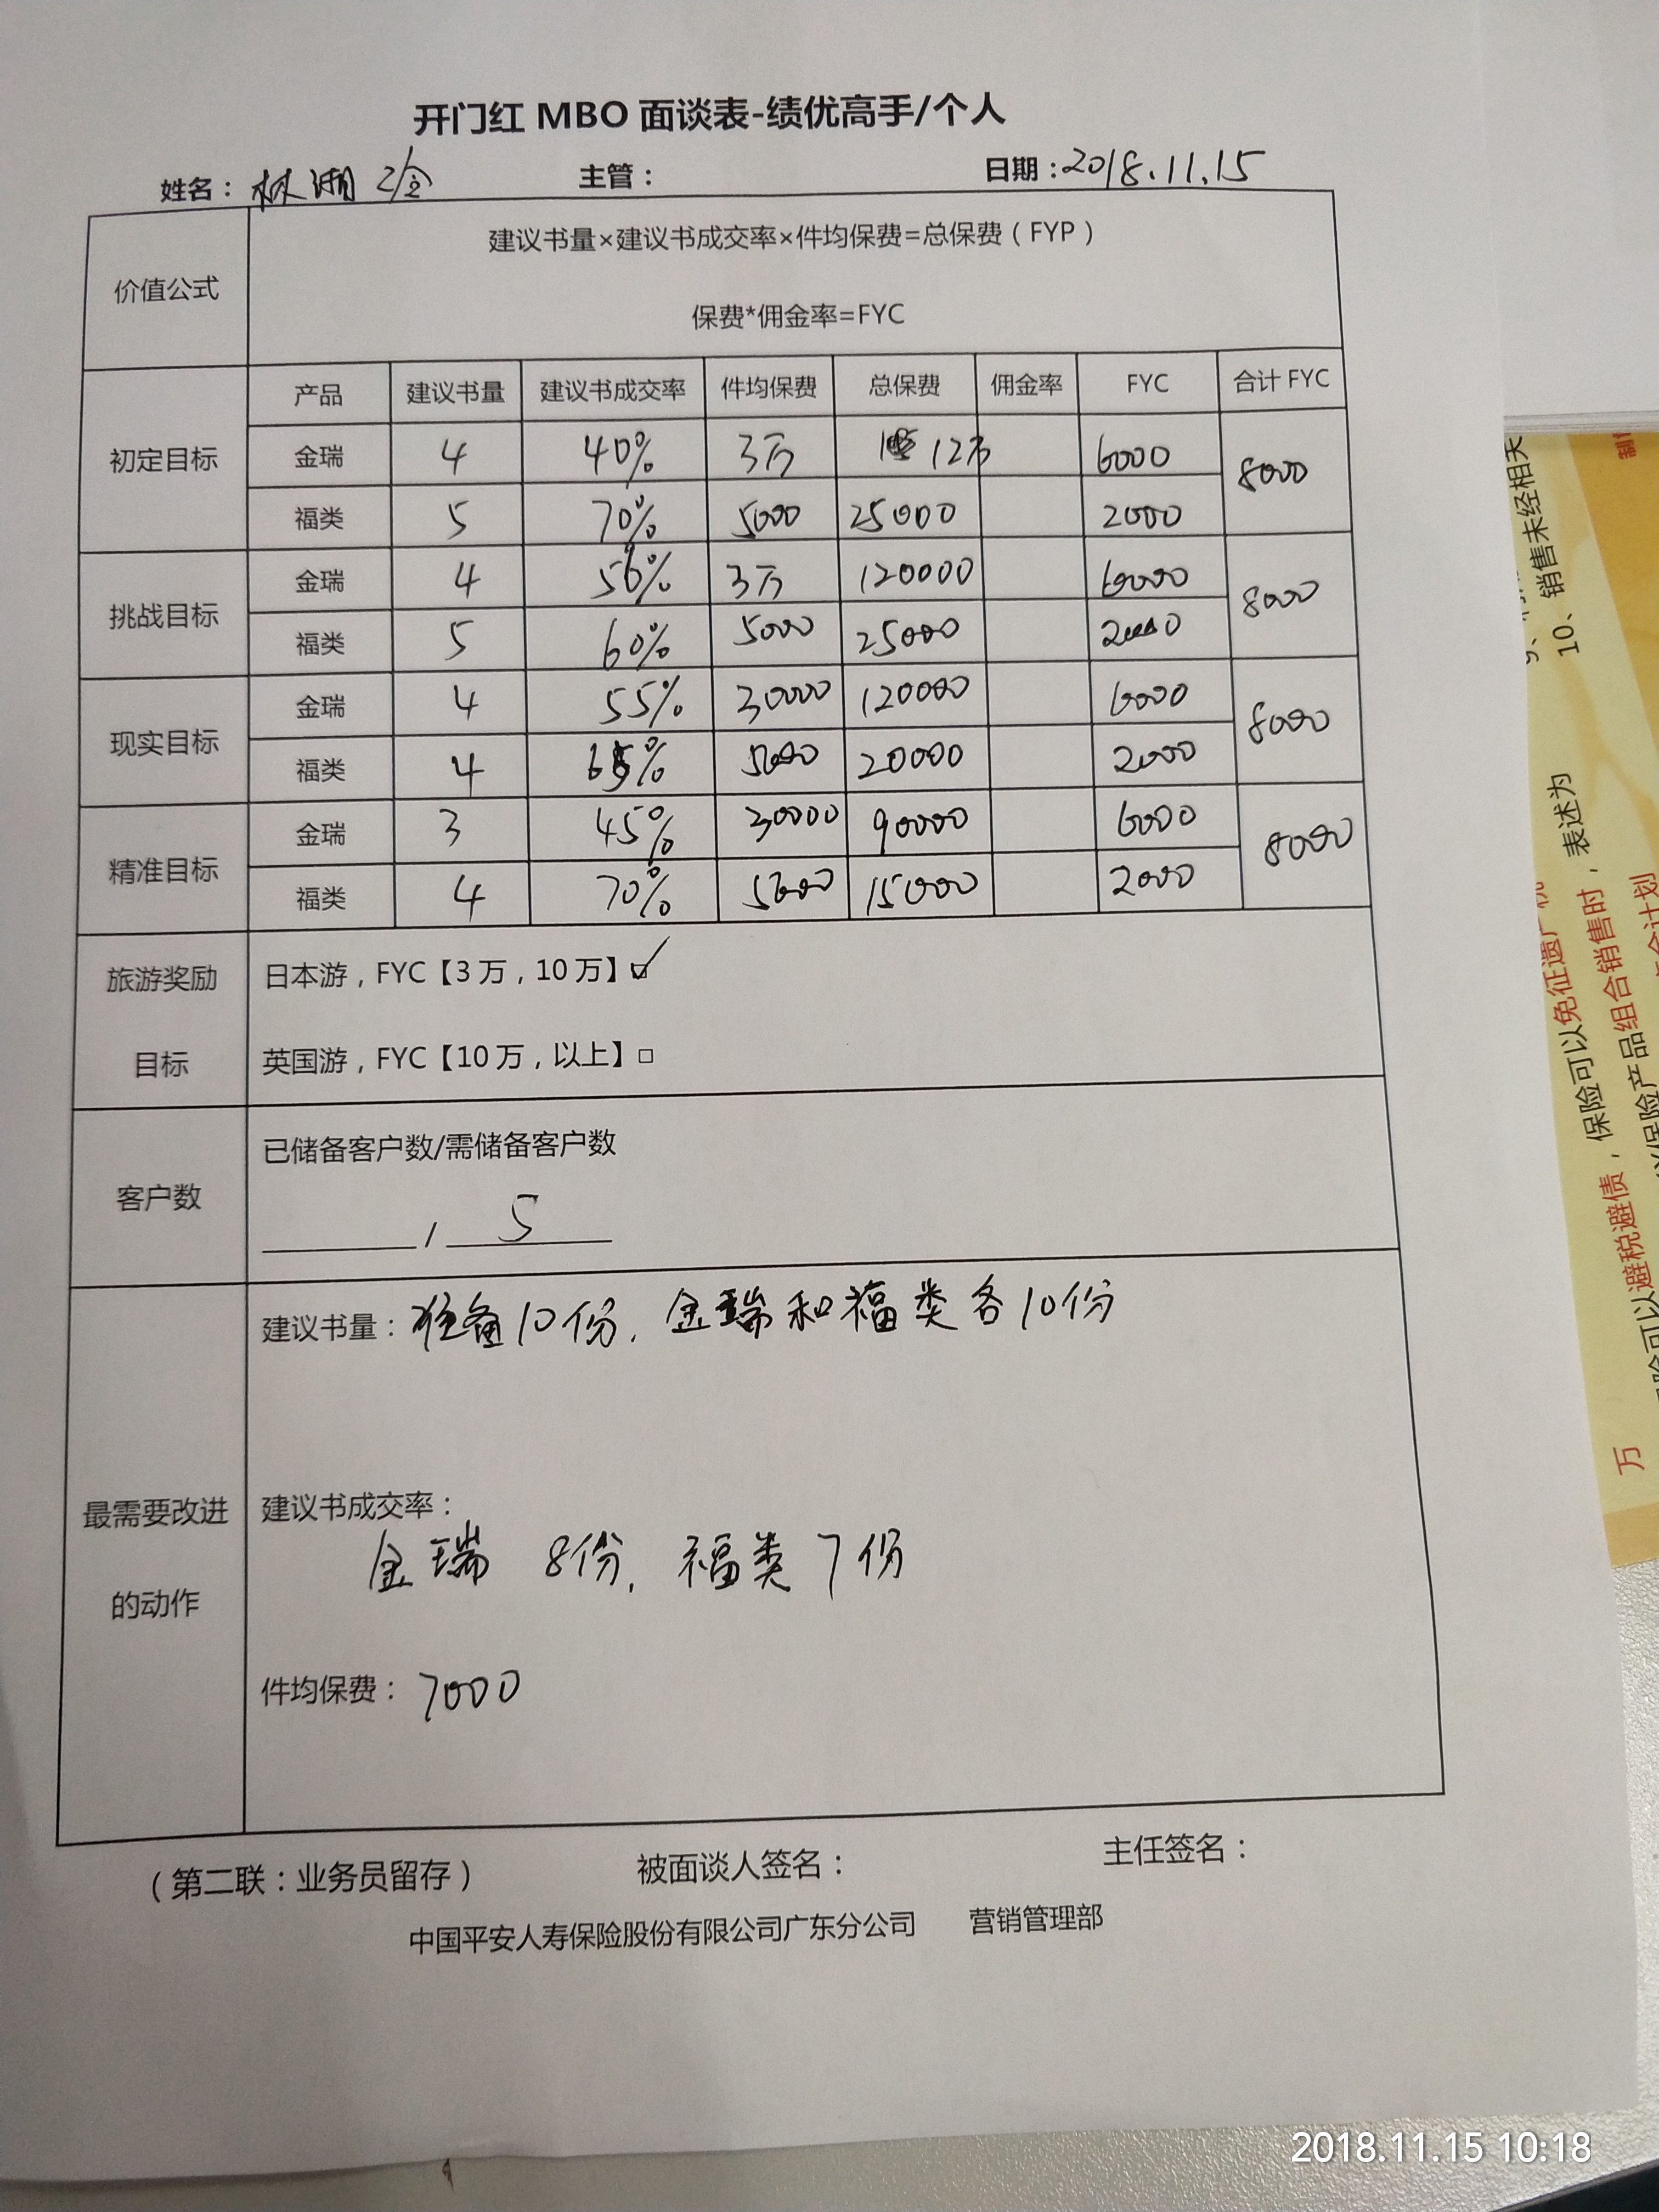 开门红 MBO 面谈表-绩优高手/个人
姓名：林湘 主管： 日期：2018.11.15
价值公式
建议书量×建议书成交率×件均保费=总保费（FYP）
保费*佣金率=FYC
产品 建议书量 建议书成交率 件均保费 总保费 佣金率 FYC 合计 FYC
初定目标
金瑞 4 40% 3万 12万 6000 8000
福类 5 70% 5000 25000 2000
挑战目标
金瑞 4 50% 3万 120000 6000 8000
福类 5 60% 5000 25000 2000
现实目标
金瑞 4 55% 30000 120000 6000 8000
福类 4 65% 5000 20000 2000
精准目标
金瑞 3 45% 30000 90000 6000 8000
福类 4 70% 5000 15000 2000
旅游奖励
目标
日本游，FYC【3万，10万】☑
英国游，FYC【10万，以上】□
客户数
已储备客户数/需储备客户数
/ 5
最需要改进
的动作
建议书量：准备10份，金瑞和福类各10份
建议书成交率：
金瑞 8份，福类7份
件均保费：7000
（第二联：业务员留存） 被面谈人签名： 主任签名：
中国平安人寿保险股份有限公司广东分公司 营销管理部
10、销售未经相关
保险可以避税避债，保险可以免征遗产税
保险产品组合销售时，表述为
合计划
万
2018.11.15 10:18